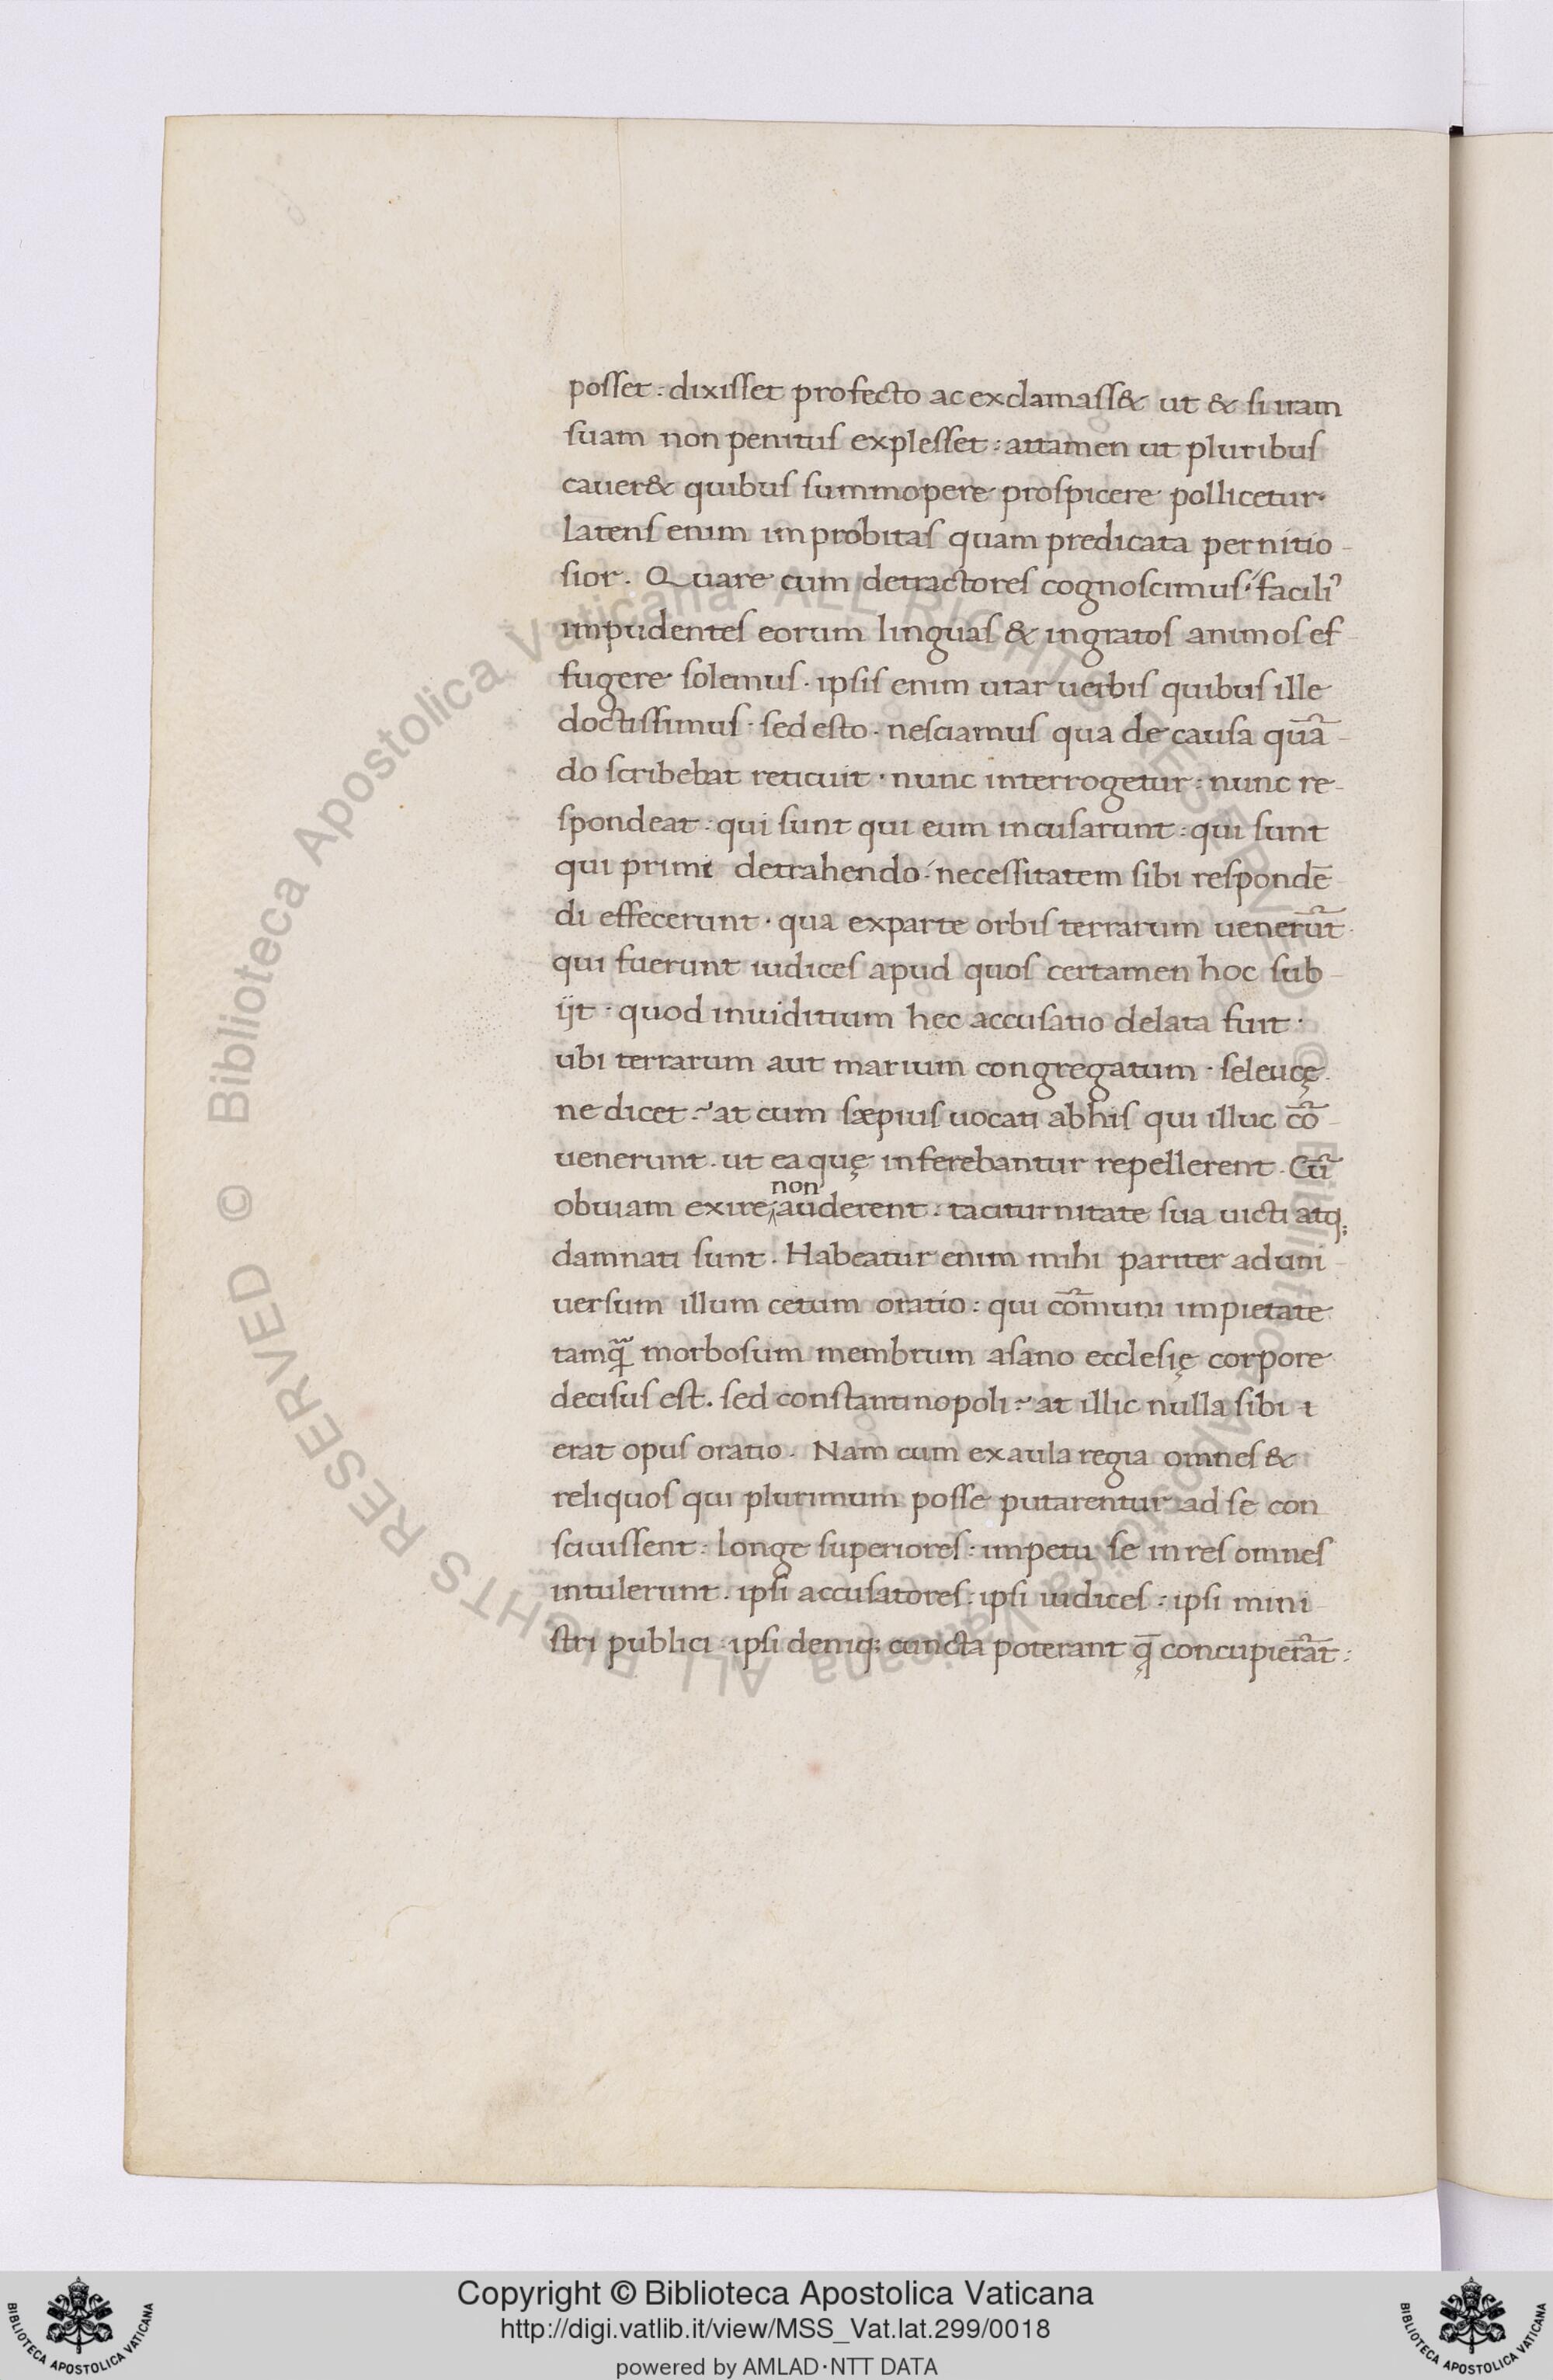 posset : dixisset profecto ac exclamass& ut & si iram
suam non penitus explesset : attamen ut pluribus
cauer& quibus summopere prospicere pollicetur ·
latens enim improbitas quam predicata pernitio-
sior . Quare cum detractores cognoscimus : facili᾿
impudentes eorum linguas & ingratos animos ef-
fugere solemus . ipsis enim utar uerbis quibus ille
doctissimus · sed esto · nesciamus qua de causa quā-
do scribebat reticuit · nunc interrogetur : nunc re-
spondeat : qui sunt qui eum incusarunt : qui sunt
qui primi detrahendo · necessitatem sibi respondē-
di effecerunt · qua exparte orbis terrarum uenerūt
qui fuerunt iudices apud quos certamen hoc sub-
ijt · quod inuiditium hec accusatio delata fuit ·
ubi terrarum aut marium congregatum · seleucę
ne dicet : at cum sæpius uocati abhis qui illuc cō-
uenerunt . ut ea quę inferebantur repellerent . Cū
obuiam exire non auderent : taciturnitate sua uicti atq;
damnati sunt . Habeatur enim mihi pariter ad uni-
uersum illum cetum oratio : qui cōmuni impietate
tamq̃ morbosum membrum asano ecclesię corpore
decisus est . sed constantinopoli : at illic nulla sibi
erat opus oratio . Nam cum exaula regia omnes &
reliquos qui plurimum posse putarentur ad se con
sciuissent : longe superiores : impetu se in res omnes
intulerunt . ipsi accusatores : ipsi iudices : ipsi mini-
stri publici · ipsi deniq; cuncta poterant q̄ę concupierāt :
Copyright © Biblioteca Apostolica Vaticana
http://digi.vatlib.it/view/MSS_Vat.lat.299/0018
powered by AMLAD·NTT DATA
BIBLIOTECA APOSTOLICA VATICANA
BIBLIOTECA APOSTOLICA VATICANA
© Biblioteca Apostolica Vaticana ALL RIGHTS RESERVED © Biblioteca Apostolica Vaticana ALL RIGHTS RESERVED